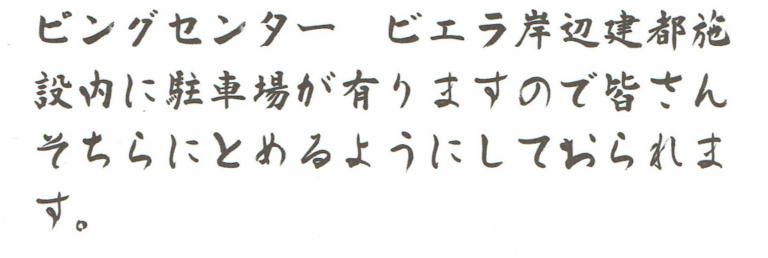 ピングセンター　ビエラ岸辺建都施
設内に駐車場が有りますので皆さん
そちらにとめるようにしておられま
す。